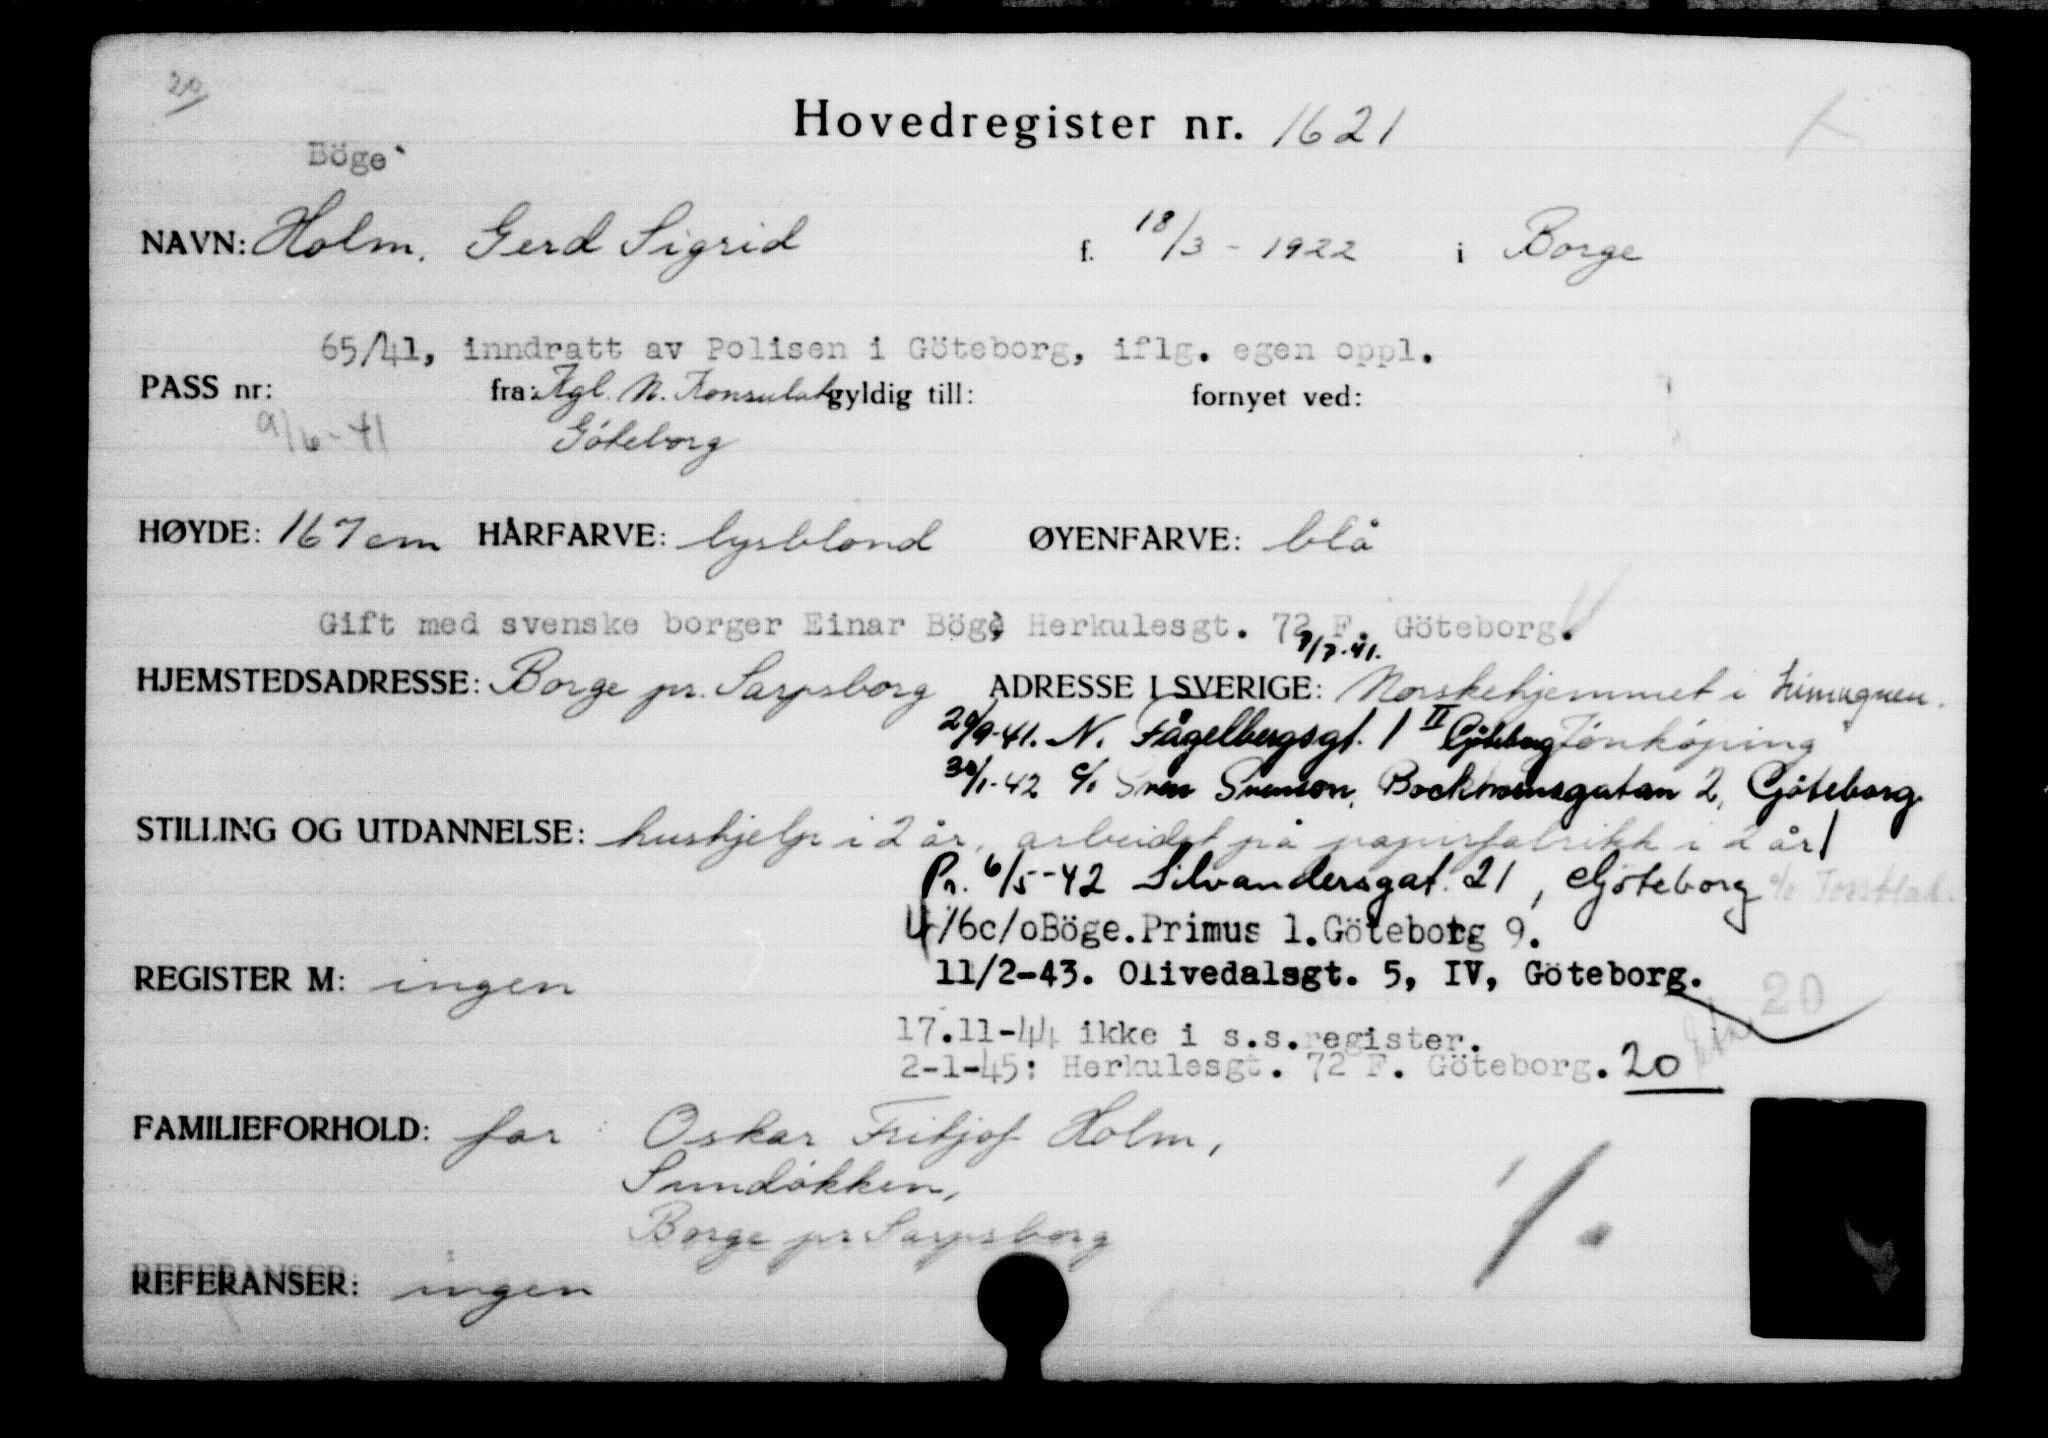 20
Hovedregister nr. 1621
Böge
NAVN: Holm, Gerd Sigrid f. 18/3 - 1922 i Borge
65/41, inndratt av Polisen i Göteborg, iflg. egen oppl.
PASS nr: fra: Kgl. N. Konsulat gyldig till: fornyet ved:
9/6-41 Göteborg
HØYDE: 167 cm HÅRFARVE: lysblond ØYENFARVE: blå
Gift med svenske borger Einar Böge, Herkulesgt. 72 F. Göteborg.
7/7.41.
HJEMSTEDSADRESSE: Borge pr. Sarpsborg ADRESSE I SVERIGE: Norskehjemmet i
29/9-41. N. Fågelbergsgt. 1 II Göteborg Jönköping
30/1-42 c/o Sven Svenson, Göteborg
STILLING OG UTDANNELSE: hushjelp i 2 år, arbeidet på papirfabrikk i 2 år
Pr. 6/5-42 Silvandersgat. 21, Göteborg c/o
4/6c/oBöge.Primus 1.Göteborg 9.
REGISTER M: ingen 11/2-43. Olivedalsgt. 5, IV, Göteborg.
20
17.11-44 ikke i s.s.register.
2-1-45: Herkulesgt. 72 F. Göteborg. 20
FAMILIEFORHOLD: far: Oskar Fritjof Holm,
Sundløkken,
Borge pr Sarpsborg
REFERANSER: ingen